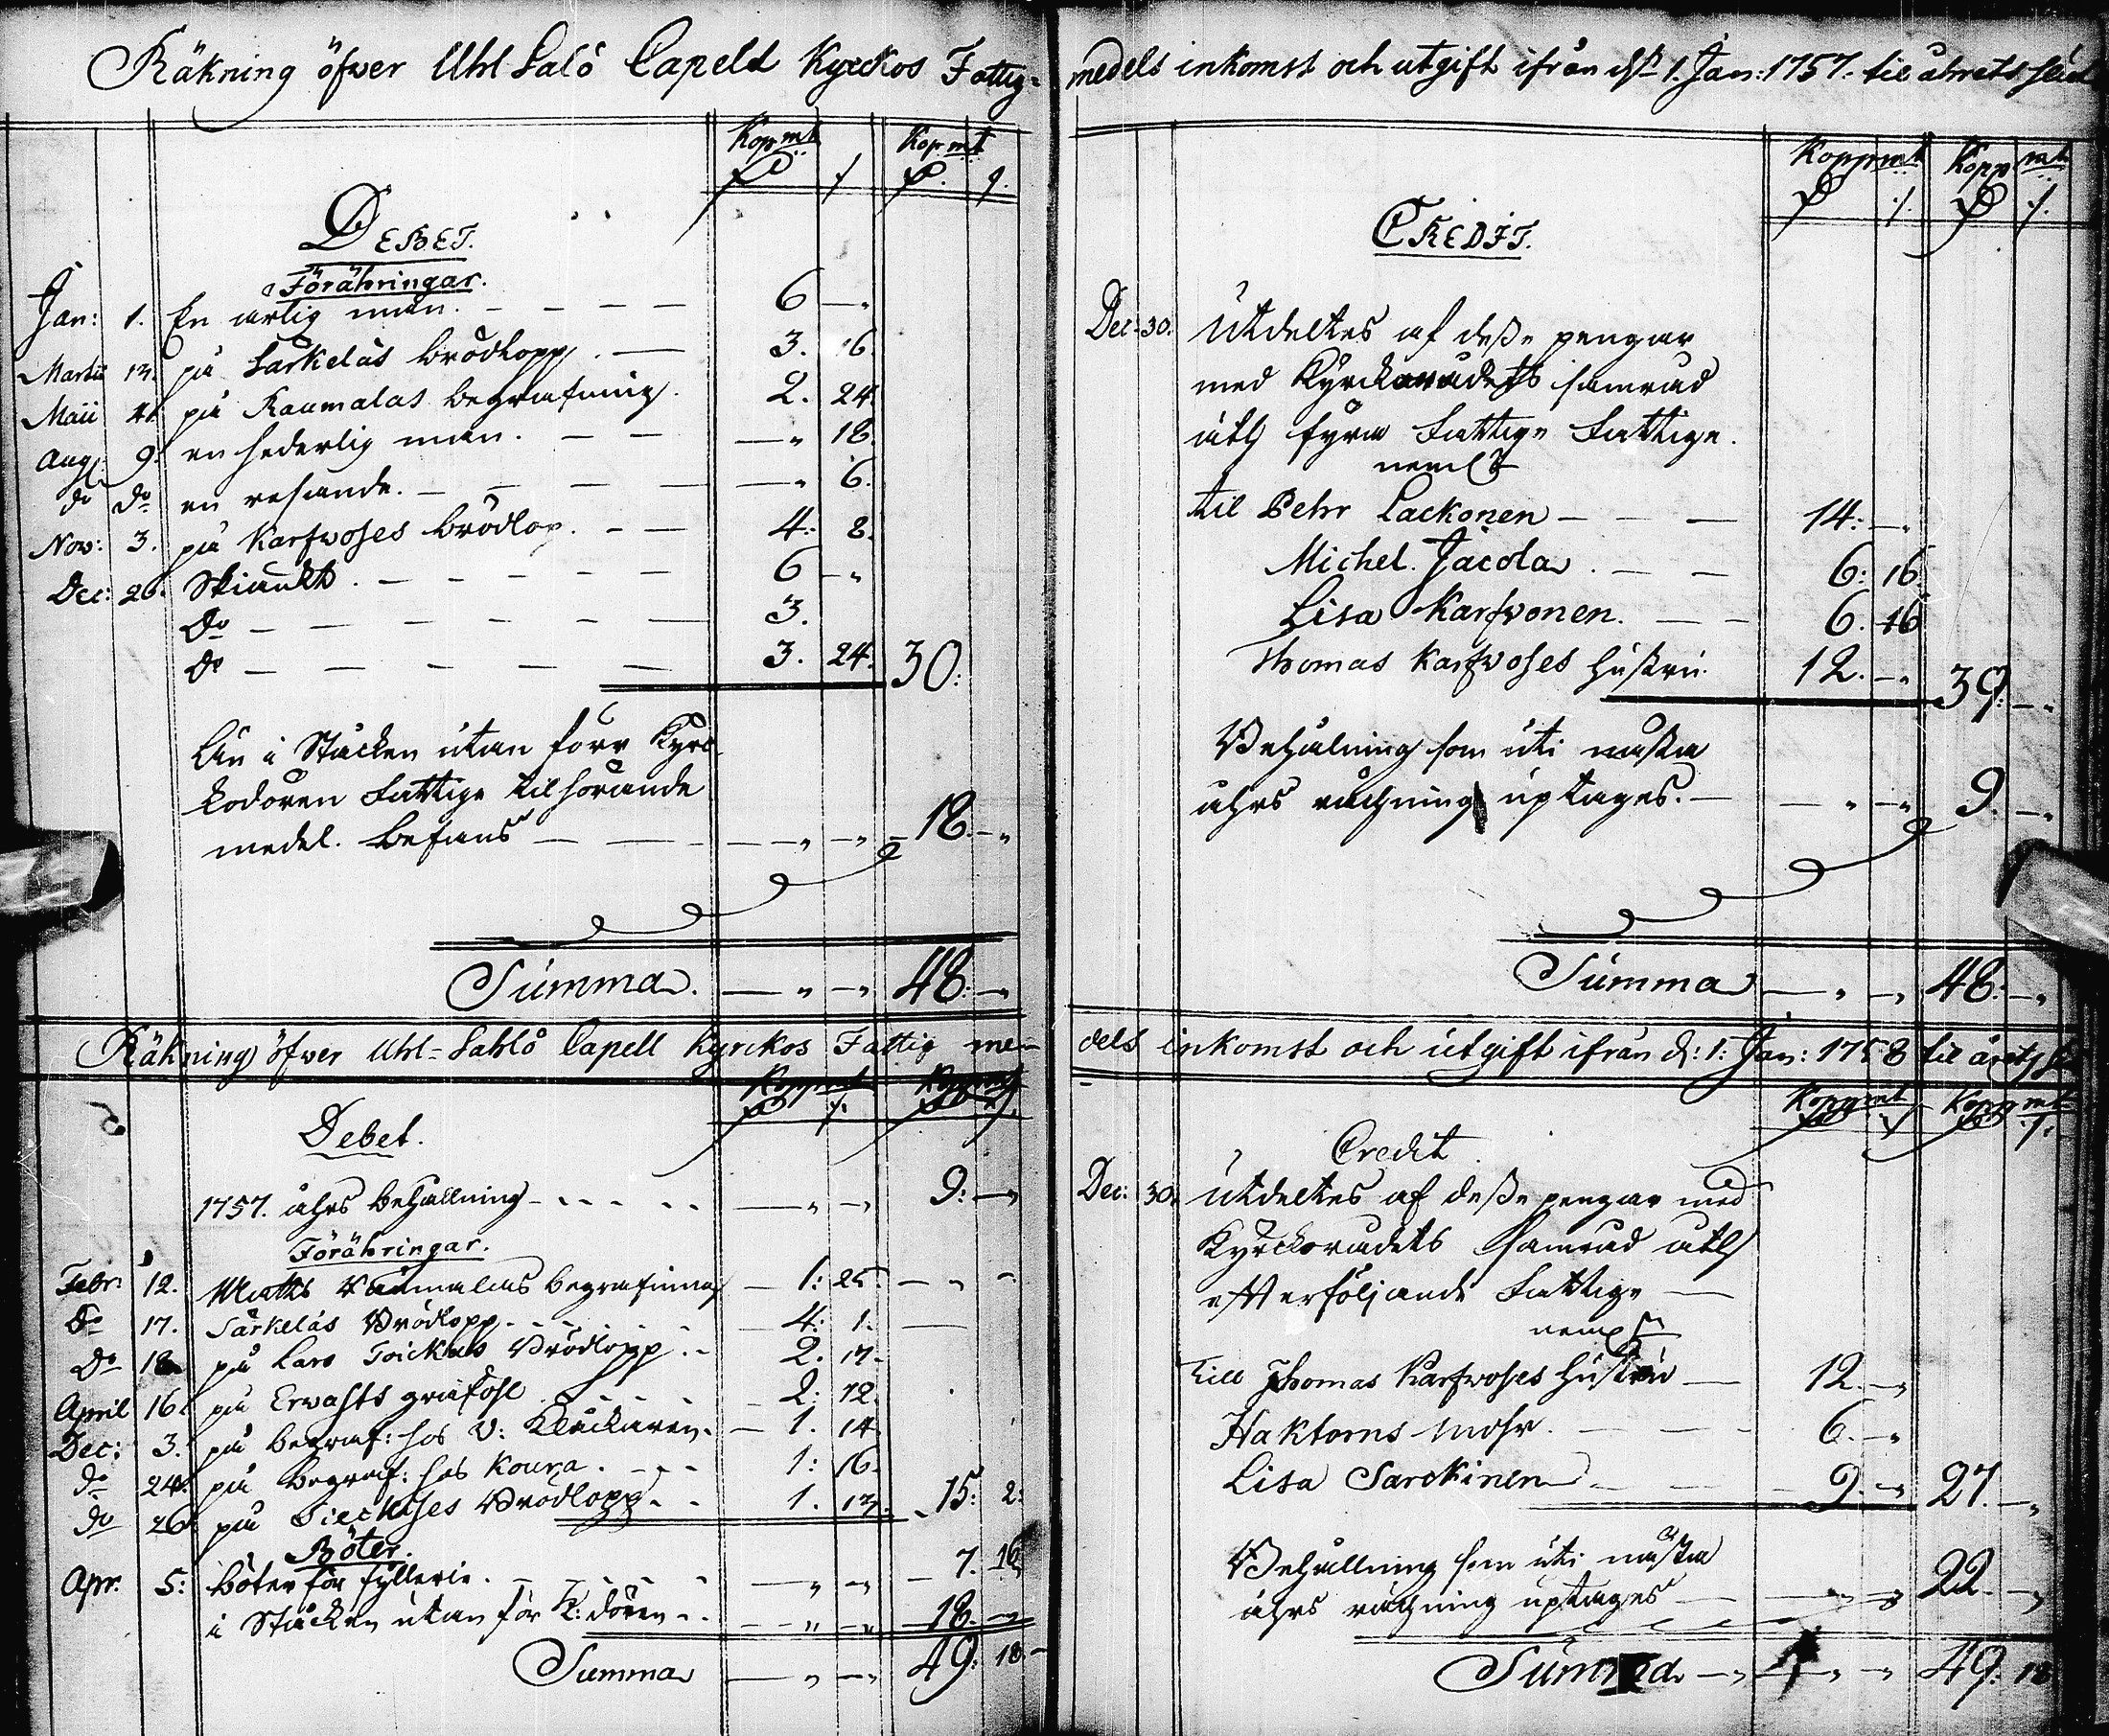 Räkning öfwer Uhl Salö Capels Kyrckos Fattig-
medels inkomst och utgift ifrån d. 1. Jan: 1757. til åhrets slut
Kopmt Kopmt
DEBET.
Förähringar.
Jan: 1. En ärlig man. 6 —
Martii 13. på Särkeläs brödlopp. 3. 16.
Maii 21. på Raumalas begrafning. 2. 24.
Aug: 9. en hederlig man. — 18.
do do en resande. — 6.
Nov: 3. på Karfwoses brödlop. 4: 8.
Dec: 26. Skiänkt. 6 —
Do 3.
Do 3. 24. 30:
Än i Stäcken utan förr Kyrc
kodören Fattige tilhörande
medel. befans — 18. —
Summa. — 48: —
CREDIT.
Koppmt Koppmt
Dec: 30. Utdeltes af desse pengar
med Kyrckorådets samråd
åth fyra Fattige Fattige.
neml:
til Pehr Lackonen 14: —
Michel Jacola 6: 16
Lisa Karfwonen. 6. 16
Thomas Karfwoses hustru. 12. — 39: —
Behålning som uti nästa
åhrs räkning uptages. — 9. —
Summa — 48: —
Räkning öfwer Uhl-Sahlö Capell Kyrckos Fattig me-
dels inkomst och utgift ifrån d: 1: Jan: 1758 til årets
Koppmt Koppmt
Debet.
1757. åhrs behållning — 9: —
Förähringar.
Febr: 12. Matts Raumalas begrafning 1: 25.
Do 17. Särkeläs Brödlopp. 4: 1.
Do 18 på Lars Toickas Brödlopp. 2. 17.
April 16. på Erwasts grafööhl 2: 12.
Dec: 3. på begraf: hos V: Klåckaren. 1. 14.
do 24. på begraf: hos Koura. 1: 16.
do 26. på Sieckises Brödlopp. 1. 13. 15: 2:
Böter.
Apr. 5: böter för fyllerie. — 7. 16
i Stäcken utan för K: dören — 18. —
Summa — 49: 18.
Credit
Koppmt Koppmt
Dec: 30. Utdeltes af desse pengar med
Kyrckorådets Samråd åth
effterföljande Fattige
neml:
till Thomas Karfwoses hustru 12. —
Haktorns mohr. 6. —
Lisa Sarckinen 9. — 27. —
Behållning som uti nästa
åhrs räkning uptages — 22. —
Summa — 49: 18